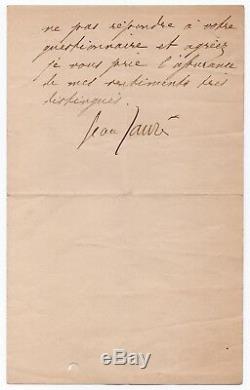 ne pas répondre à votre
questionnaire et agréez
je vous prie l'assurance
de mes sentiments très
distingués.
Jean Jaurès